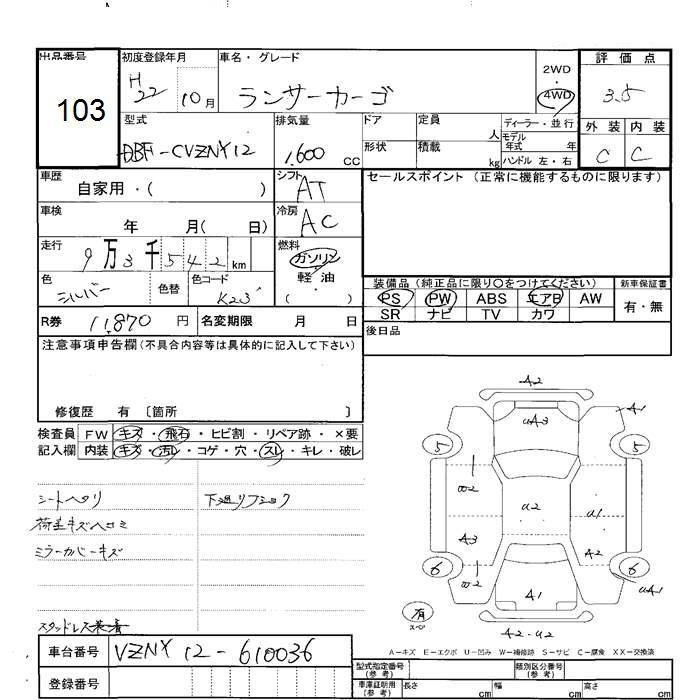 出品番号
103
初度登録年月
H22 10月
車名・グレード
ランサーカーゴ
2WD
・
4WD
評価点
3.5
外装 内装
C C
型式
DBF-CVZNY12
排気量
1,600 CC
ドア
形状
定員
人
積載
kg
ディーラー・並行
モデル
年式 年
ハンドル 左・右
車歴
自家用・( )
シフト
AT
セールスポイント (正常に機能するものに限ります)
車検
年 月( 日)
冷房
AC
走行
9万3千542km
燃料
ガソリン
軽・油
( )
色
シルバー
色替
色コード
K23
装備品 (純正品に限り○をつけてください)
PS PW ABS エアB AW
SR ナビ TV カワ
新車保証書
有・無
R券 11,870 円
名変期限 月 日
後日品
注意事項申告欄(不具合内容等は具体的に記入して下さい)
修復歴 有 〔箇所 〕
検査員
記入欄
FW キズ・飛石・ヒビ割・リペア跡・×要
内装 キズ・汚レ・コゲ・穴・スレ・キレ・破レ
シートヘタリ
下廻リフショク
荷室キズヘコミ
ミラーカバーキズ
スタッドレス装着
A2
UA3
A1
5
5
W2
U2
U1
A3
A2
6
6
W2
A1
UA1
有
スペア
A2-U2
A-キズ E-エクボ U-凹み W-補修跡 S-サビ C-腐食 XX-交換済
車台番号 VZNY12-610036
登録番号
型式指定番号
(参考)
類別区分番号
(参考)
車庫証明用
(参考)
長さ cm
幅 cm
高さ cm